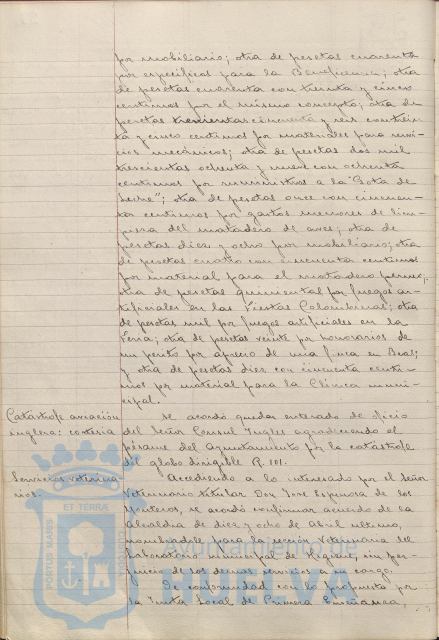 por mobiliario; otra de pesetas cuarenta
por especificos para la Beneficencia; otra
de pesetas cuarenta con treinta y cinco
centimos por el mismo concepto; otra de
pesetas trescientas cincuenta y seis con trein
ta y cinco centimos por materiales para
cios mecánicos; otra de pesetas dos mil
trescientas ochenta y nueve con ochenta
centimos por suministros a la "Gota de
Leche"; otra de pesetas once con cincuen-
ta centimos por gastos menores de lim-
pieza del matadero de aves; otra de
pesetas diez y ocho por mobiliario; otra
de pesetas cuatro con cincuenta centimos
por material para el matadero
otra de pesetas quinientas por fuegos ar-
tificiales en las Fiestas Colombinas; otra
de pesetas mil por fuegos artificiales en la
Feria; otra de pesetas veinte por honorarios de
un perito por aprecio de una finca en Beas;
y otra de pesetas diez con cincuenta centi-
mos por material para la Clínica muni-
cipal.
Catástrofe aviación
inglesa: cortesia
Se acordó quedar enterado de oficio
del Señor Consul Inglés agradeciendo el
pésame del Ayuntamiento por la catástrofe
del globo dirigible R. 101.
Servicios veterina
rios.
Accediendo a lo interesado por el Señor
Veterinario titular Don Jose Espinosa de los
Monteros, se acordó confirmar acuerdo de la
alcaldia de diez y ocho de Abril ultimo,
nombrandole para la sección veterinaria del
Laboratorio Municipal de Higiene, sin per-
juicio de los demas servicios a su cargo.
De conformidad con lo propuesto por
la Junta Local de Primera Enseñanza,
PORTUS MARIS
ET TERRÆ
CUSTODIA
HUELVA